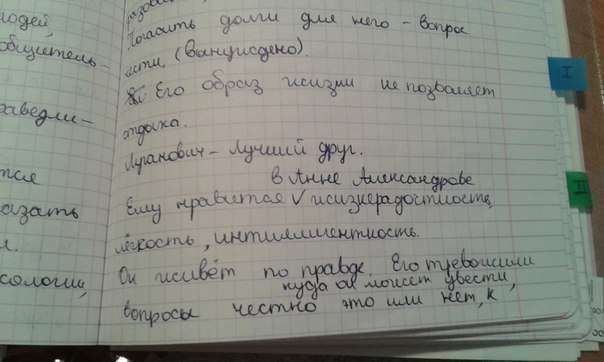 людей,
общитель-
раведли-
тся
азать
л.
сологии,
Погасить долги для него - вопрос
чести (вынужденно).
Его образ жизни не позволяет
отдыха.
Луганович - Лучший друг.
в Анне Александровне
Ему нравится V жизнерадостность,
лёгкость, интиллигентность.
Он живёт по правде. Его тревожили
куда он может увести,
вопросы честно это или нет, к
I
II